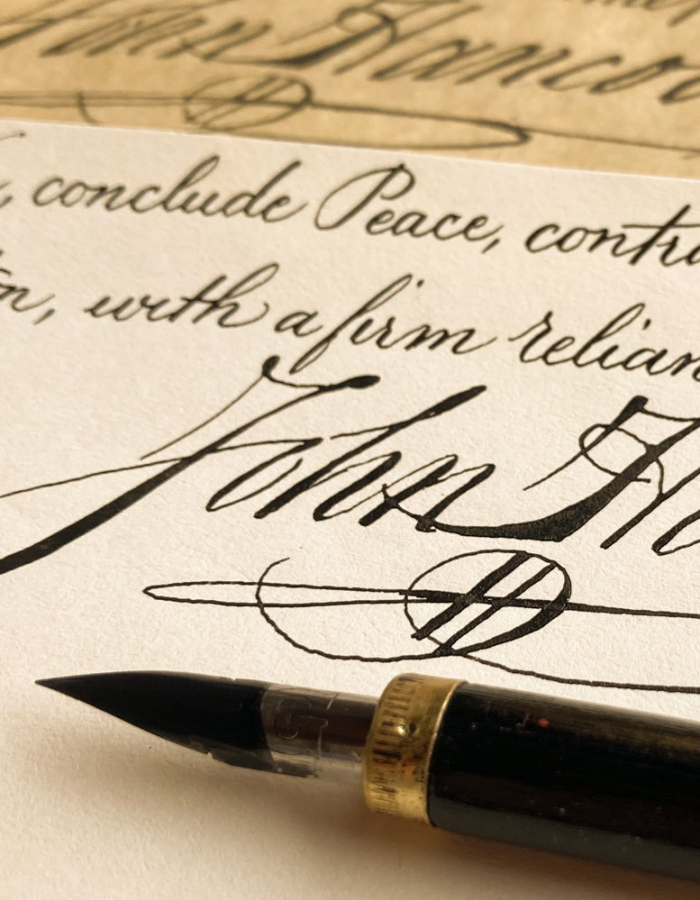 John Hanco
conclude Peace, contra
with a firm relian
John H